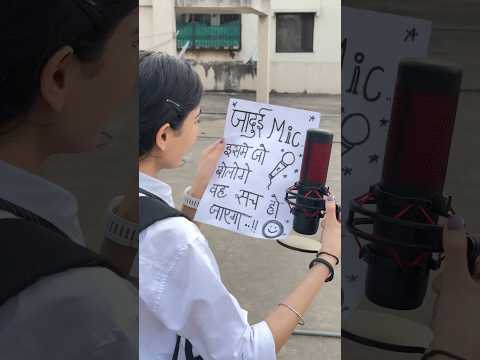 जादुई Mic
इसमे जो
बोलोगे
वह सच हो
जाएगा..!!